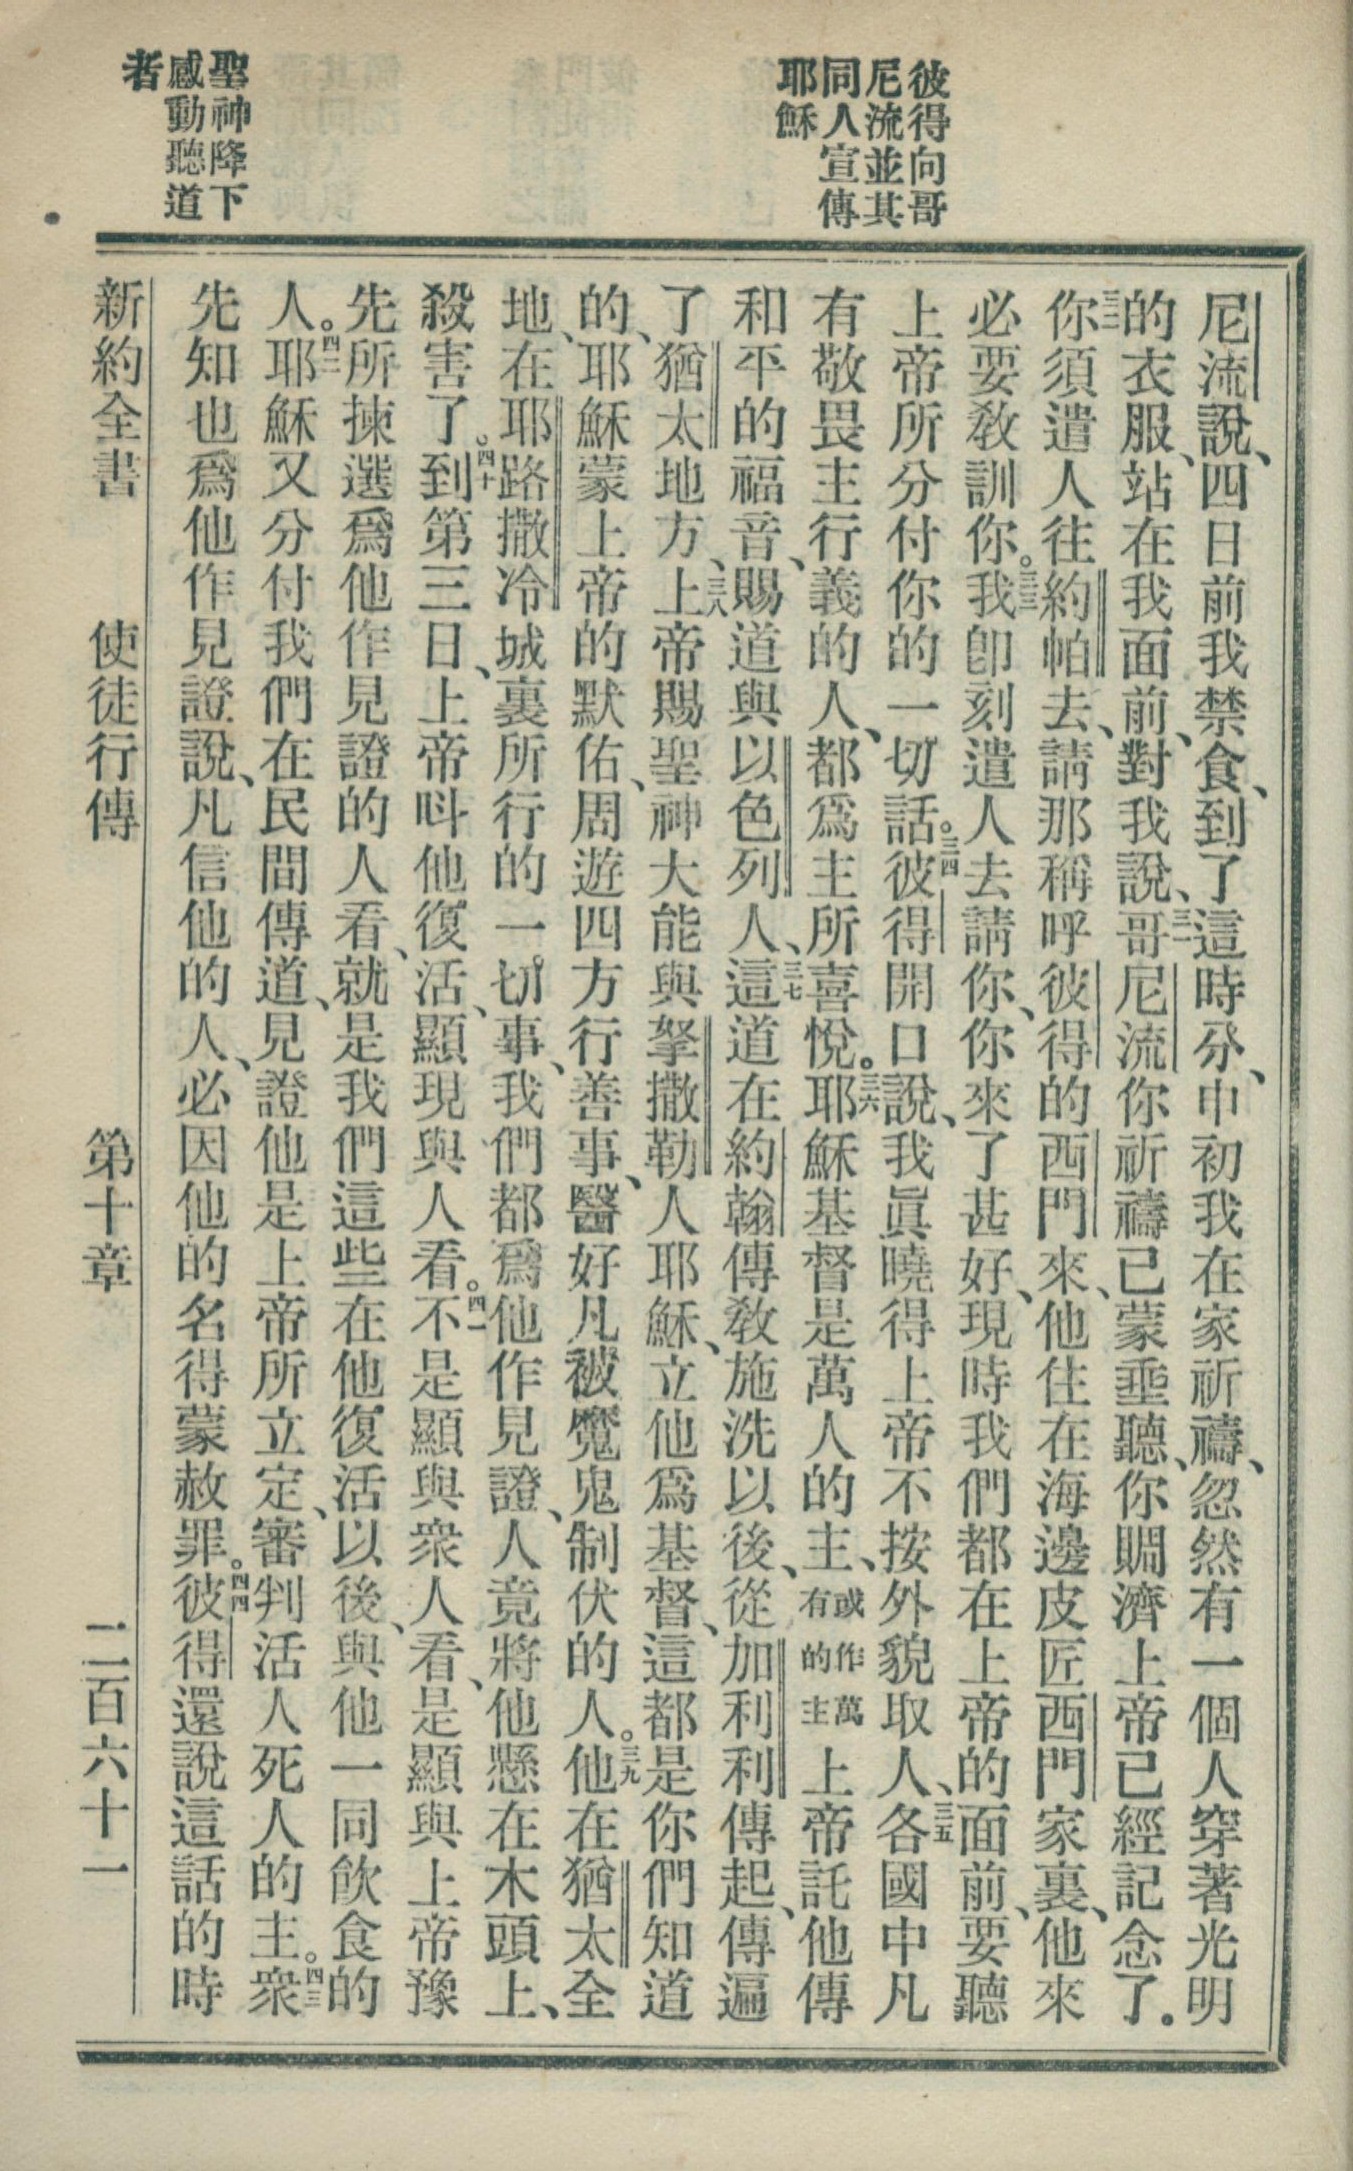 彼得向哥
尼流並其
同人宣傳
耶穌
聖神降下
感動聽道
者
尼流說、四日前我禁食、到了這時分、申初我在家祈禱、忽然有一個人穿著光明
的衣服、站在我面前、對我說、三一哥尼流你祈禱已蒙垂聽、你賙濟上帝已經記念了。
三二你須遣人往約帕去、請那稱呼彼得的西門來、他住在海邊皮匠西門家裏、他來
必要教訓你。三三我卽刻遣人去請你、你來了甚好、現時我們都在上帝的面前、要聽
上帝所分付你的一切話。三四彼得開口說、我眞曉得上帝不按外貌取人、三五各國中凡
有敬畏主行義的人、都爲主所喜悅。三六耶穌基督是萬人的主、或作萬有的主上帝託他傳
和平的福音、賜道與以色列人、三七這道在約翰傳教施洗以後、從加利利傳起、傳遍
了猶太地方、三八上帝賜聖神大能與拏撒勒人耶穌、立他爲基督、這都是你們知道
的、耶穌蒙上帝的默佑、周遊四方行善事、醫好凡被魔鬼制伏的人。三九他在猶太全
地、在耶路撒冷城裏所行的一切事、我們都爲他作見證、人竟將他懸在木頭上、
殺害了。四十到第三日、上帝呌他復活、顯現與人看。四一不是顯與衆人看、是顯與上帝豫
先所揀選爲他作見證的人看、就是我們這些在他復活以後、與他一同飲食的
人。四二耶穌又分付我們在民間傳道、見證他是上帝所立定、審判活人死人的主。四三衆
先知也爲他作見證說、凡信他的人、必因他的名得蒙赦罪。四四彼得還說這話的時
新約全書 使徒行傳 第十章 二百六十一